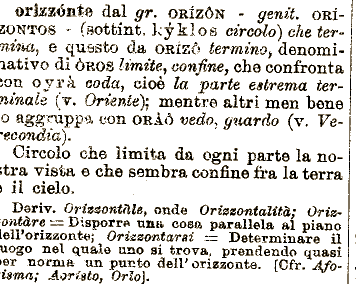 orizzónte dal gr. ORÍZÔN - genit. ORÍ-
ZONTOS - (sottint. kỳklos circolo) che ter-
mina, e questo da ORÍZÔ termino, denomi-
nativo di ÒROS limite, confine, che confronta
con OYRÀ coda, cioè la parte estrema ter-
minale (v. Oriente); mentre altri men bene
lo aggruppa con ORÀÔ vedo, guardo (v. Ve-
recondia).
Circolo che limita da ogni parte la no-
stra vista e che sembra confine fra la terra
e il cielo.
Deriv. Orizzontàle, onde Orizzontalità; Oriz-
zontàre = Disporre una cosa parallela al piano
dell'orizzonte; Orizzontarsi = Determinare il
luogo nel quale uno si trova, prendendo quasi
per norma un punto dell'orizzonte. [Cfr. Afo-
risma; Aoristo, Orlo].